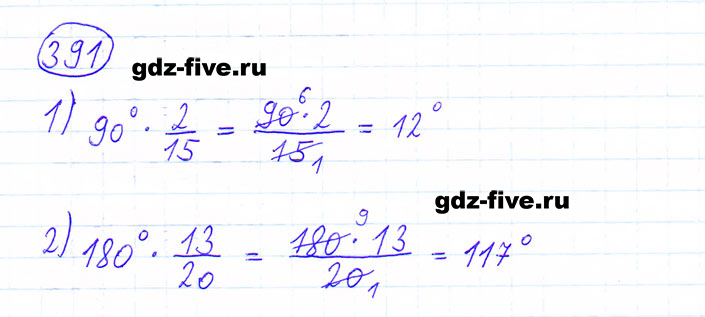 391
gdz-five.ru
1) 90° · 2/15 = 90 6 · 2 / 15 1 = 12°
gdz-five.ru
2) 180° · 13/20 = 180 9 · 13 / 20 1 = 117°